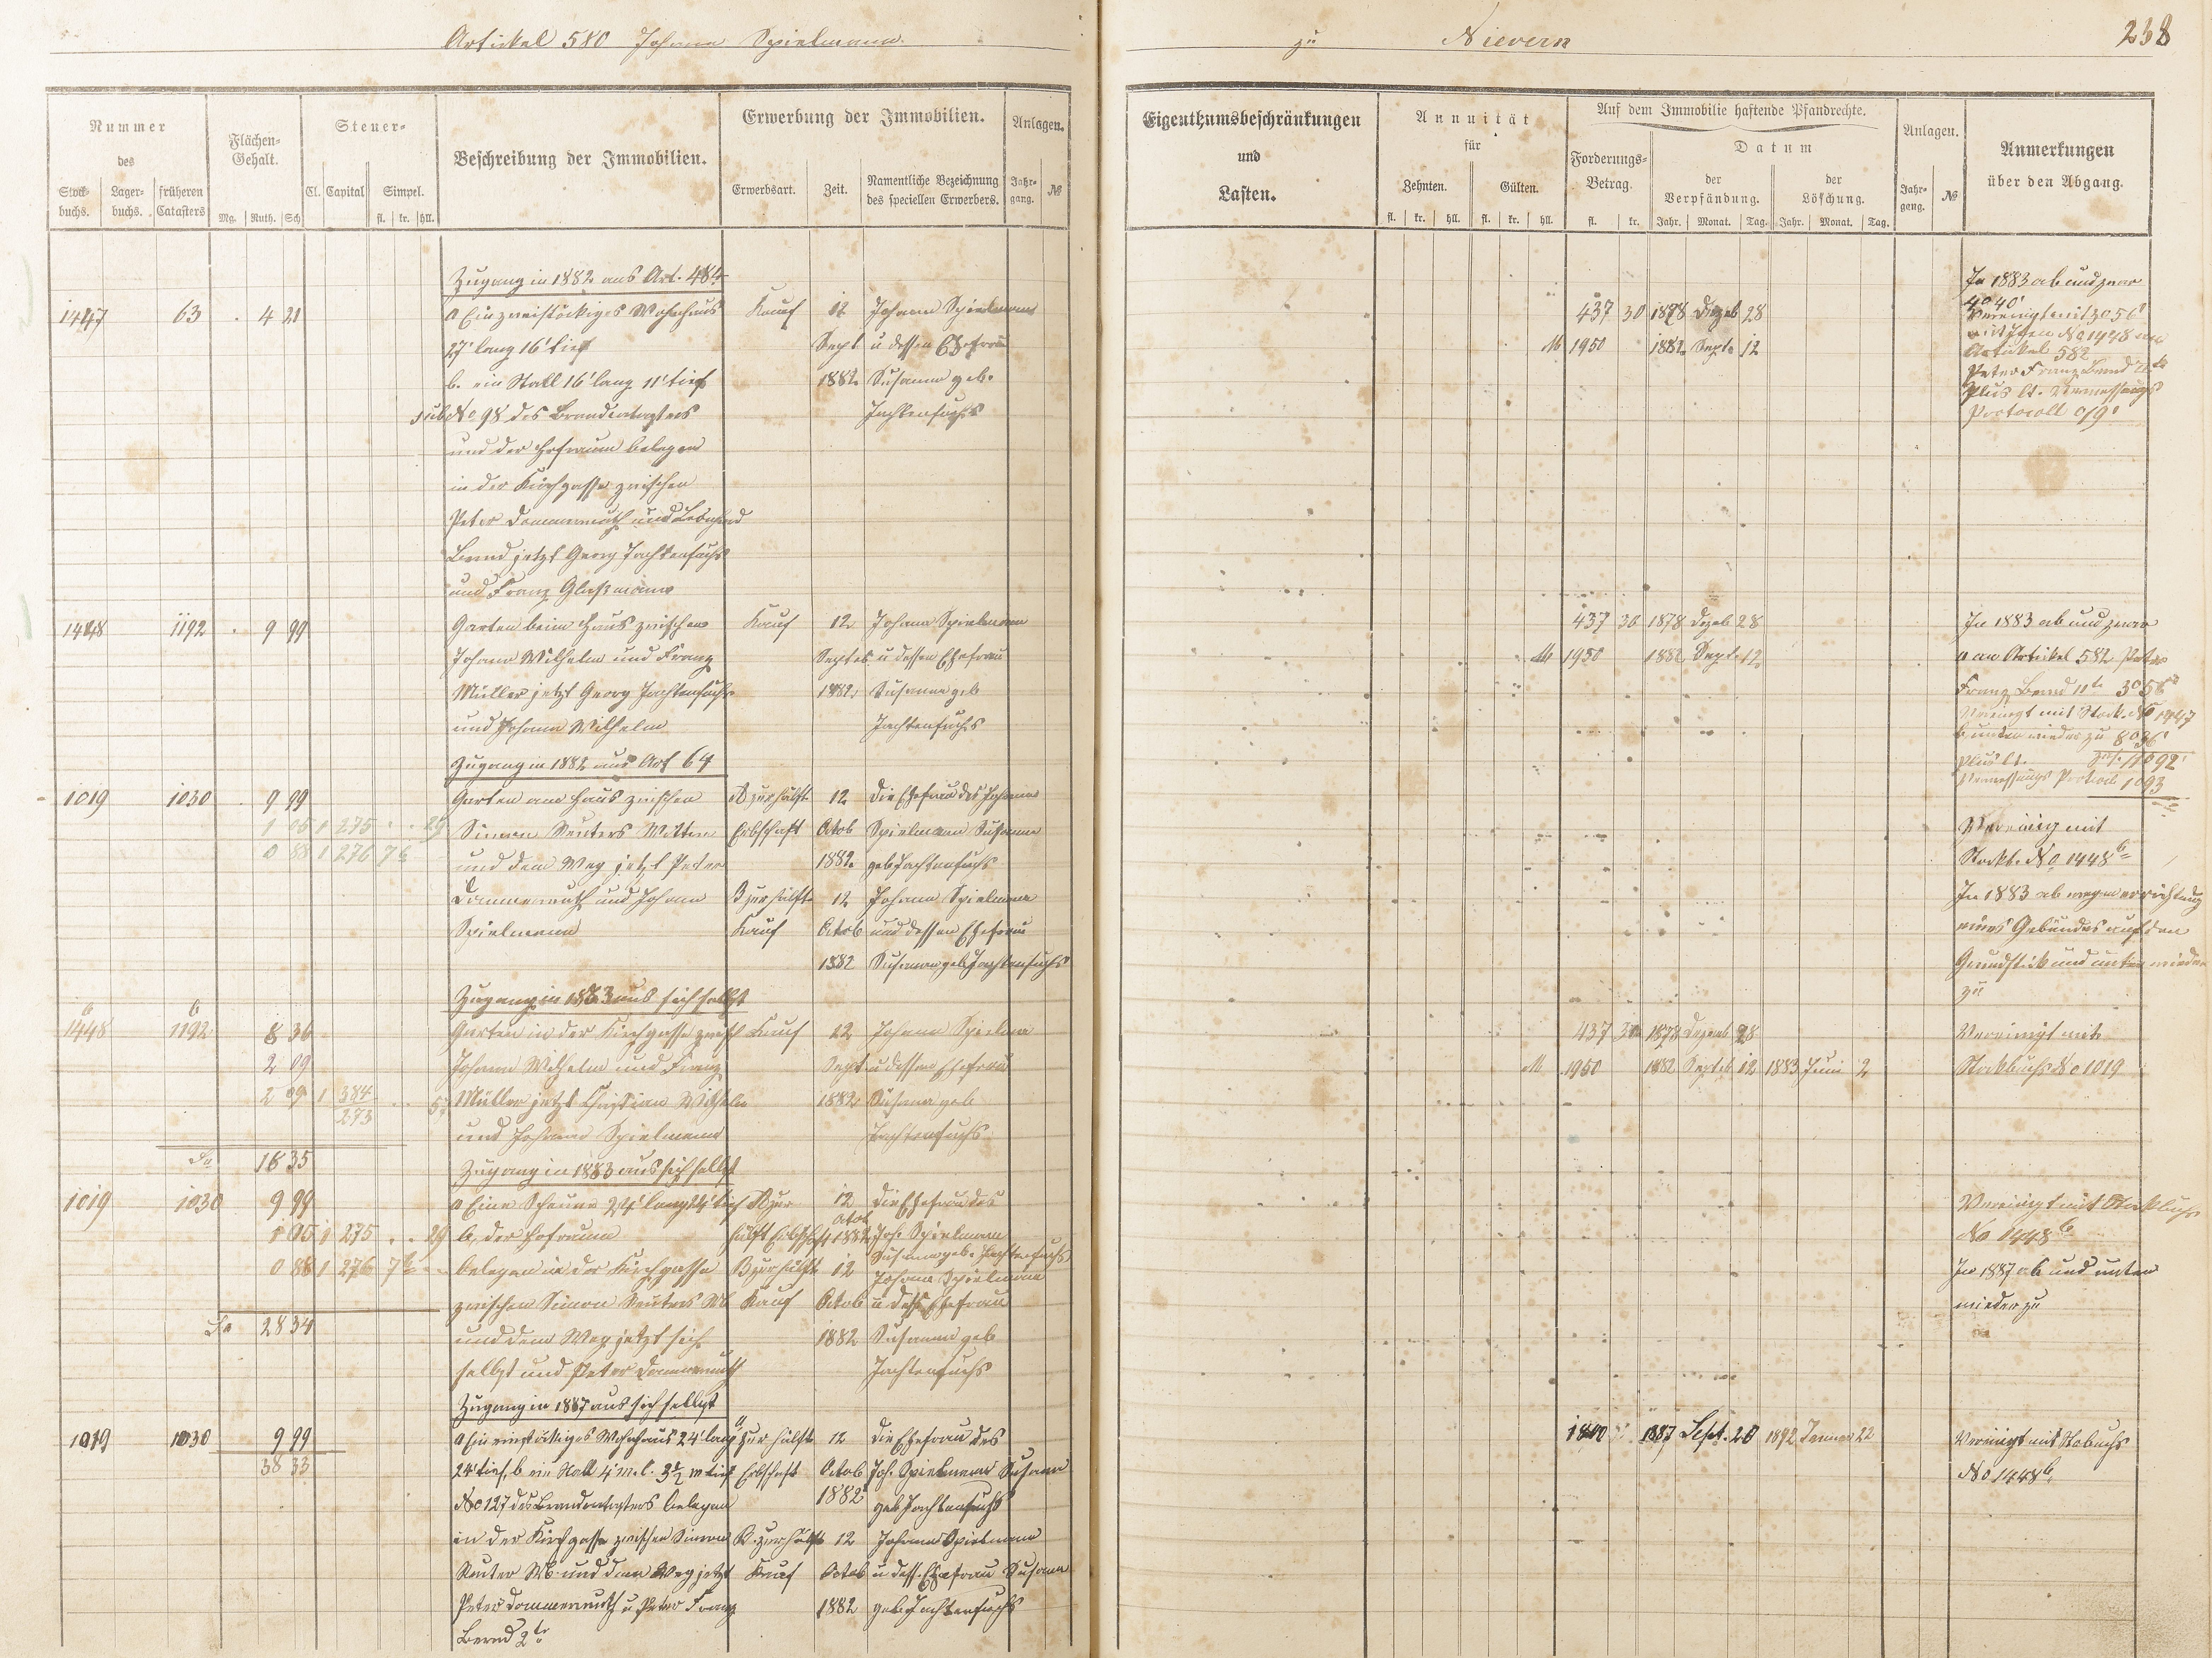 Artickel 580 Johann Spielmann.
Nummer
des
Stockbuchs.
Lagerbuchs.
früheren Catasters
Flächen-Gehalt.
Mg. Ruth. Sch
Steuer-
Cl. Capital Simpel.
fl. kr. hll.
Beschreibung der Immobilien.
Erwerbung der Immobilien.
Erwerbsart. Zeit. Namentliche Bezeichnung des speciellen Erwerbers.
Anlagen.
Jahrgang. №
Zugang in 1882 aus Art. 484
1447 63 4 21 a Ein zweistöckiges Wohnhaus Kauf 12 Johann Spielmann
27' lang 16' tief Sept u dessen Ehefrau
b. ein Stall 16' lang 11' tief 1882 Susanna geb.
sub No 98 des Brandcatasters Jachtenfuchs
und der Hofraum belegen
in der Kirchgasse zwischen
Peter Dommermuth und
Bernd jetzt Georg Jachtenfuchs
und Franz
1448 1192 9 99 Garten beim Haus zwischen Kauf 12 Johann Spielmann
Johann Wilhelm und Franz Septeb u dessen Ehefrau
Müller jetzt Georg Jachtenfuchs 1882 Susanna geb
und Johann Wilhelm Jachtenfuchs
Zugang in 1882 aus Art 64
1019 1030 9 99 Garten am Haus zwischen A zur Hälfte 12 die Ehefrau des Johann
1 05 1 275 29 Simon Reuters Wittwe Erbschaft Octob Spielmann Susanna
0 88 1 276 und dem Weg jetzt Peter 1882 geb Jachtenfuchs
Dommermuth und Johann B zur Hälfte 12 Johann Spielmann
Spielmann Kauf Octob und dessen Ehefrau
1882 Susanna geb Jachtenfuchs
Zugang in 1883 aus sich selbst
1448 b 1192 b 8 36 Garten in der Kirchgasse zwisch Kauf 12 Johann Spielman
2 09 Johann Wilhelm und Franz Sept u dessen Ehefrau
2 09 1 384 Müller jetzt Christian Wilhelm 1882 Susanna geb
273 und Johann Spielmann Jachtenfuchs
Sa 18 35
Zugang in 1883 aus sich selbst
1019 1030 9 99 a Eine Scheune 24' lang 24' tief A zur 12 die Ehefrau des
1 05 1 275 29 b. der Hofraum Hälft Erbschaft Octob 1882 Joh. Spielmann
Susanna geb. Jachtenfuchs
0 88 1 276 belegen in der Kirchgasse B zur Hälft 12 Johann Spielmann
zwischen Simon Reuters Wb Kauf Octob u dess Ehefrau
Sa 28 34 und dem Weg jetzt sich 1882 Susanna geb
selbst und Peter Dommermuth Jachtenfuchs
Zugang in 1887 aus sich selbst
1019 1030 9 99 a Ein einstöckiges Wohnhaus 24' lang zur Hälft 12 die Ehefrau des
38 33 24' tief, b ein Stall 4 m. l. 3½ m tief Erbschaft Octob Joh. Spielmann Susanna
No 127 des Brandcatasters belegen 1882 geb Jachtenfuchs
in der Kirchgasse zwischen Simon B. zur Hälft 12 Johann Spielmann
Reuter Wb und dem Weg jetzt Kauf Octob u dess. Ehefrau Susanna
Peter Dommermuth u Peter Franz 1882 geb Jachtenfuchs
Bernd 2te
zu Nievern 238
Eigenthumsbeschränkungen
und
Lasten.
Annuität
für
Zehnten. Gülten.
fl. kr. hll. fl. kr. hll.
Auf dem Immobilie haftende Pfandrechte.
Forderungs-Betrag.
fl. kr.
Datum
der Verpfändung.
der Löschung.
Jahr. Monat. Tag. Jahr. Monat. Tag.
Anlagen.
Jahrgang. №
Anmerkungen
über den Abgang.
In 1883 ab und zwar
437 30 1878 Dezeb 28
M 1950 1882 Sept 12
Artickel 582
Peter Franz Bernd
Plus lt. Vermessungs
Protocoll
437 30 1878 Dezeb 28 In 1883 ab und zwar
M 1950 1882 Sept. 12 a an Artickel 582 Peter
Franz Bernd
Vereinigt mit Stock. No 1447
b unten wieder zu 8° 36'
plus lt.
Vermessungs Protoc
Vereinig mit
Stockb. No 1448 b
In 1883 ab wegen errichtung
eines Gebäudes auf dem
Grundstück und unten wieder
zu
437 30 1878 Dezemb 28 Vereinigt mit
M 1950 1882 Septeb 12 1883 Juni 2 Stockbuchs No 1019
Vereinigt mit Stockbuchs
No 1448 b
In 1887 ab und unten
wieder zu
1887 Sept. 20 1892 Januar 22 Vereinigt mit Stobuchs
No 1448 b.